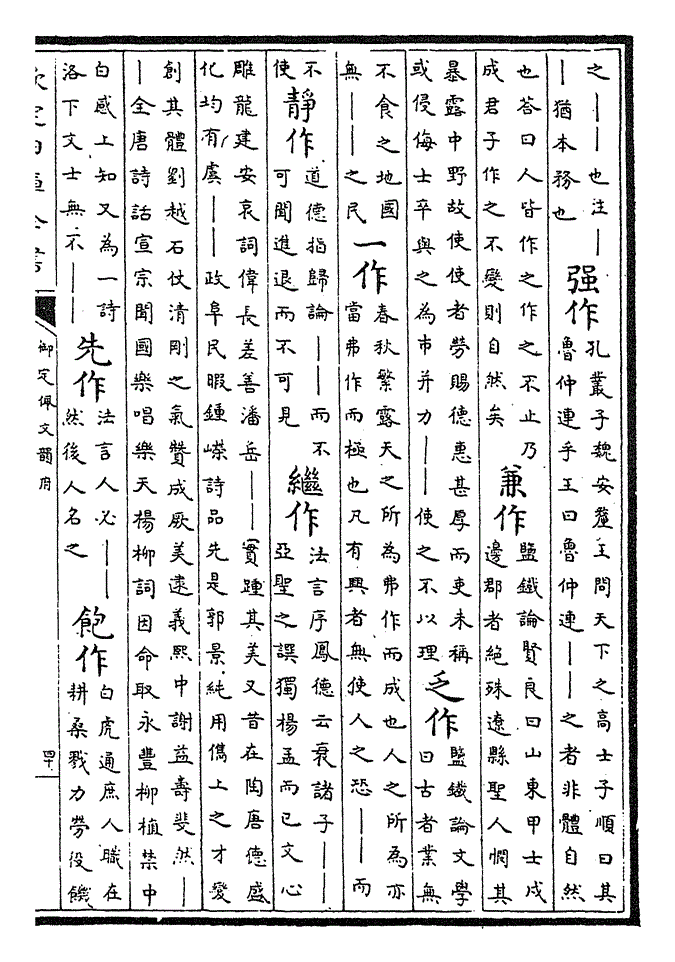 之｜｜也注｜
｜猶本務也
强作
孔叢子魏安釐王問天下之高士子順曰其
魯仲連乎王曰魯仲連｜｜之者非體自然
也答曰人皆作之作之不止乃
成君子作之不變則自然矣
兼作
鹽鐵論賢良曰山東甲士戍
邊郡者絶殊遼縣聖人憫其
暴露中野故使使者勞賜德惠甚厚而吏未稱
或侵侮士卒與之為市并力｜｜使之不以理
乏作
鹽鐵論文學
曰古者業無
不食之地國
無｜｜之民
一作
春秋繁露天之所為弗作而成也人之所為亦
當弗作而極也凡有興者無使人之恐｜｜而
不
使
靜作
道德指歸論｜｜而不
可聞進退而不可見
繼作
法言序鳳德云衰諸子｜｜
亞聖之譔獨楊孟而已文心
雕龍建安哀詞偉長差善潘岳｜｜實踵其美又昔在陶唐德盛
化均有虞｜｜政阜民暇鍾嶸詩品先是郭景純用儁上之才變
創其體劉越石仗清剛之氣贊成厥美逮義熙中謝益壽斐然｜
｜全唐詩話宣宗聞國樂唱樂天楊柳詞因命取永豐柳植禁中
白感上知又為一詩
洛下文士無不｜｜
先作
法言人必｜｜
然後人名之
飽作
白虎通庶人職在
耕桑戮力勞役饑
欽定四庫全書
御定佩文韻府